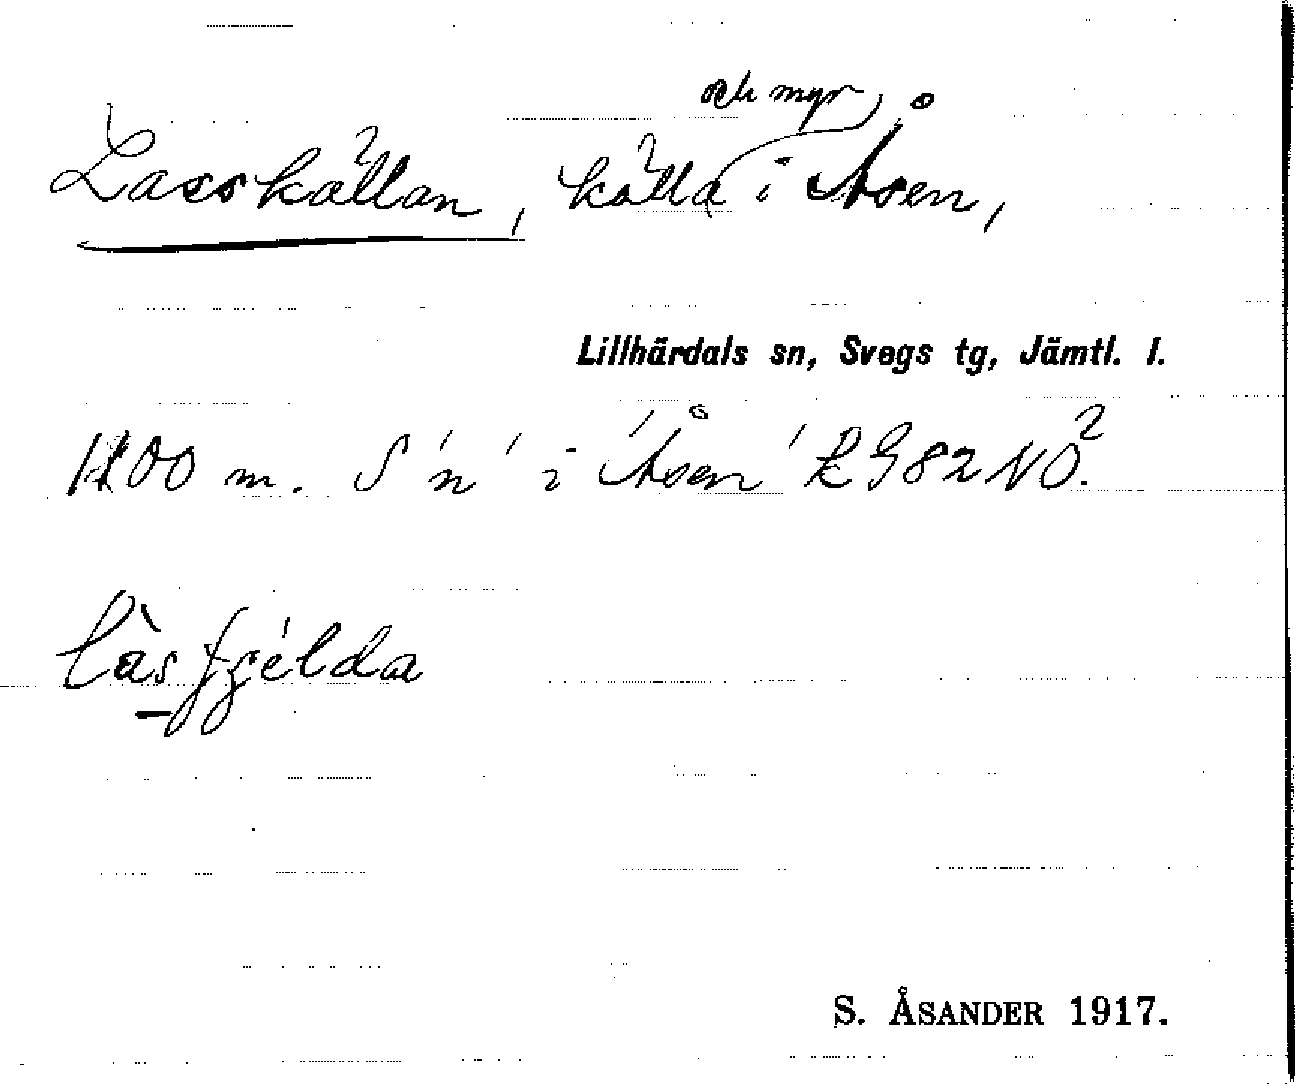 och myr
Lasskällan, källa i Åsen,
Lillhärdals sn, Svegs tg, Jämtl. l.
1100 m. S 'n' i 'Åsen' R G 82 NO².
làsfjélda
S. ÅSANDER 1917.